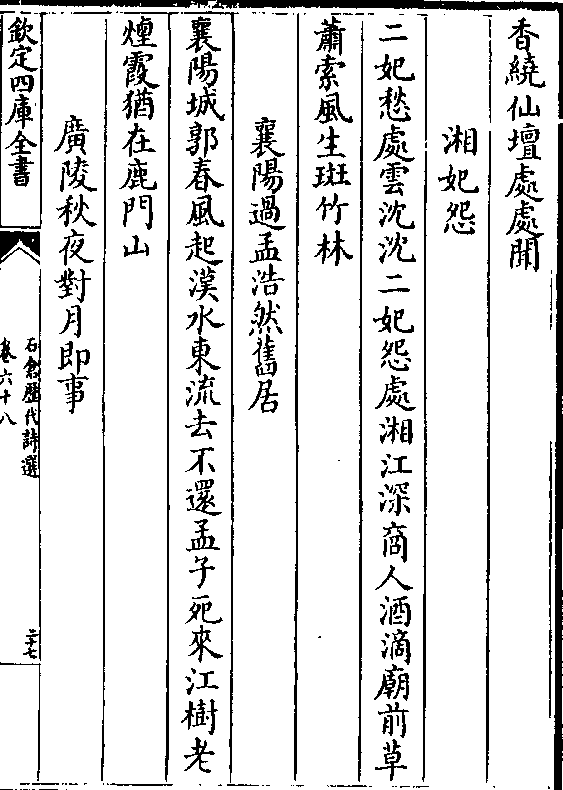 香繞仙壇處處聞
湘妃怨
二妃愁處雲沈沈二妃怨處湘江深商人酒滴廟前草
蕭索風生斑竹林
襄陽過孟浩然舊居
襄陽城郭春風起漢水東流去不還孟子死來江樹老
煙霞猶在鹿門山
廣陵秋夜對月即事
欽定四庫全書
石倉歷代詩選
卷六十八
二十七